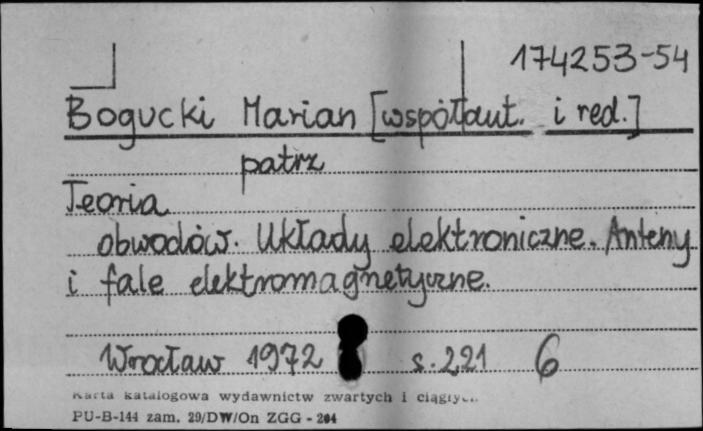 174253-54
Bogucki Marian [współaut. i red.]
patrz
Teoria
obwodów. Układy elektroniczne. Anteny
i fale elektromagnetyczne.
Wrocław 1972 s. 221 6
Karta katalogowa wydawnictw zwartych i ciągłych
PU-B-144 zam. 29/DW/On ZGG - 204